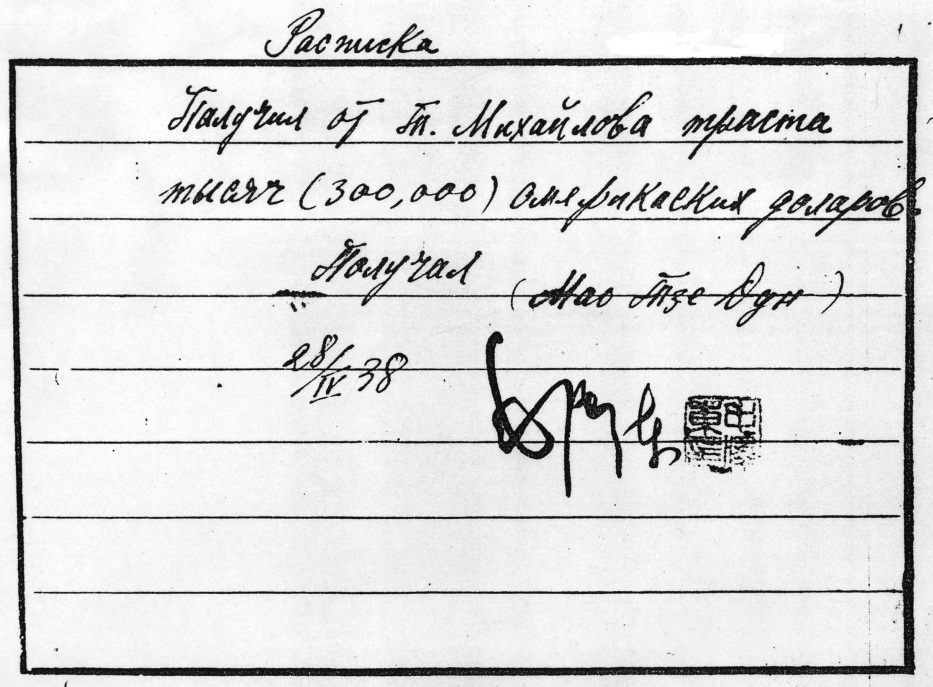 Расписка
Получил от т. Михайлова триста
тысяч (300,000) америкаских доларов.
Получал
(Мао Тзе Дун)
28/IV 38